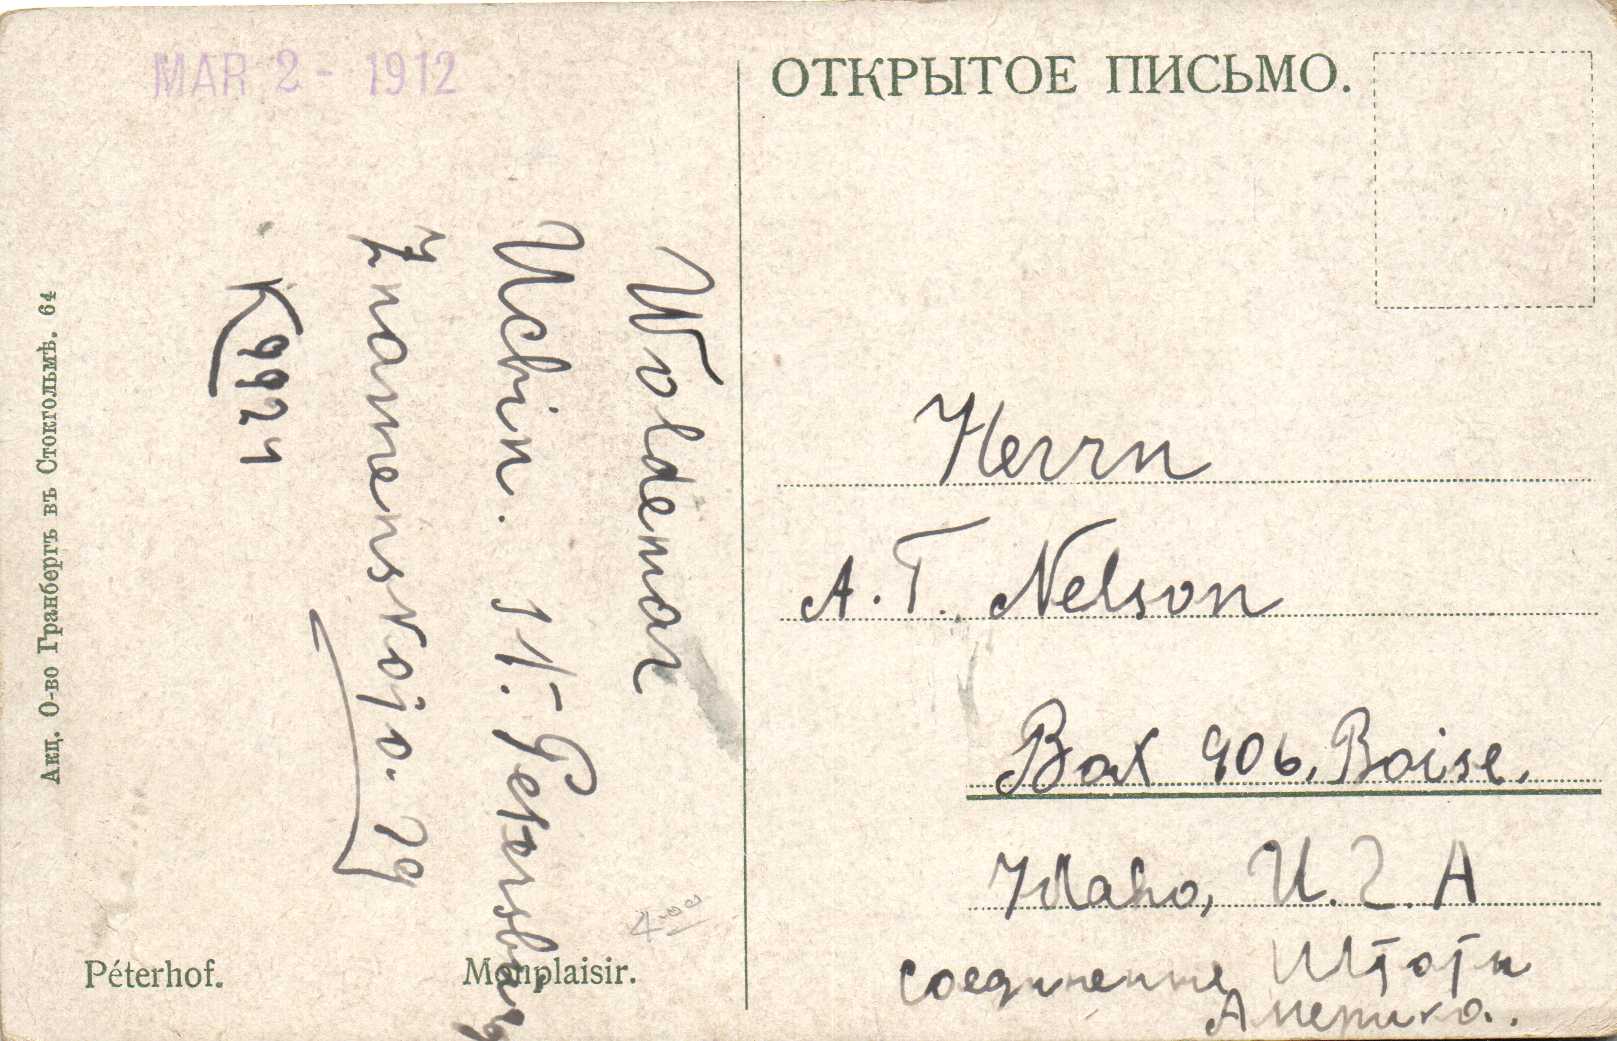 MAR 2 - 1912
ОТКРЫТОЕ ПИСЬМО.
Woldemar
Uchin. St. Petersburg
Znamenskaja. 29
K 9921
Акц. О-во Гранбергъ въ Стокгольмѣ. 64
Péterhof. Monplaisir.
4.00
Herrn
A. T. Nelson
Box 906, Boise.
Idaho, U. S. A
соединенные Штаты
Америка..